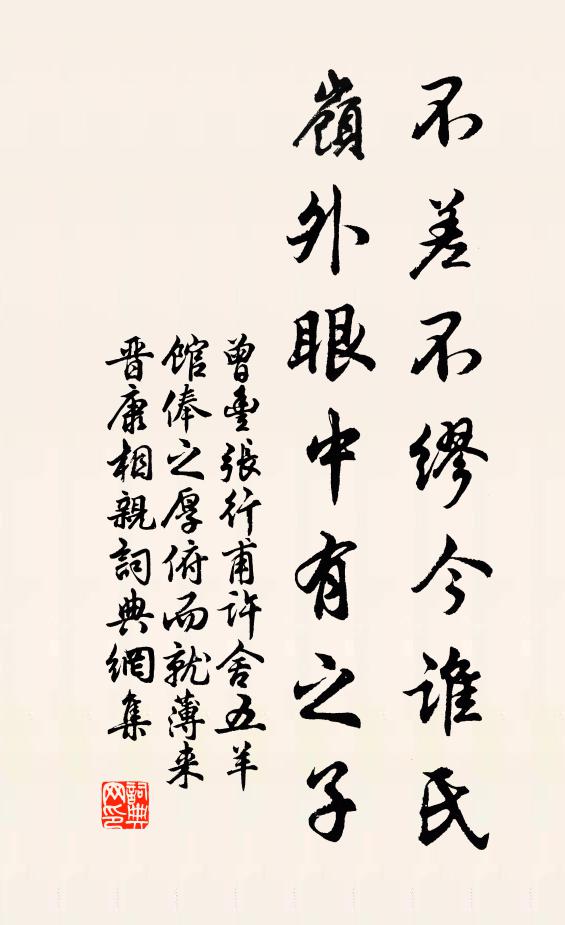 不差不繆今誰氏
嶺外眼中有之子
曾豐張行甫許舍五羊
館俸之厚俯而就薄来
晋康相親詞典網集
詞典
网印